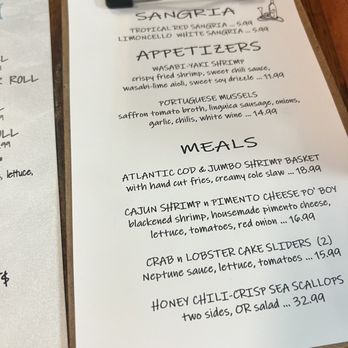 SANGRIA
TROPICAL RED SANGRIA ... 5.99
LIMONCELLO WHITE SANGRIA ... 5.99
APPETIZERS
WASABI-YAKI SHRIMP
crispy fried shrimp, sweet chili sauce,
wasabi-lime aioli, sweet soy drizzle ... 11.99
PORTUGUESE MUSSELS
saffron tomato broth, linguica sausage, onions,
garlic, chilis, white wine ... 14.99
MEALS
ATLANTIC COD & JUMBO SHRIMP BASKET
with hand cut fries, creamy cole slaw ... 18.99
CAJUN SHRIMP n PIMENTO CHEESE PO' BOY
blackened shrimp, housemade pimento cheese,
lettuce, tomatoes, red onion ... 16.99
CRAB n LOBSTER CAKE SLIDERS (2)
Neptune sauce, lettuce, tomatoes ... 15.99
HONEY CHILI-CRISP SEA SCALLOPS
two sides, OR salad ... 32.99
ROLL
lettuce,